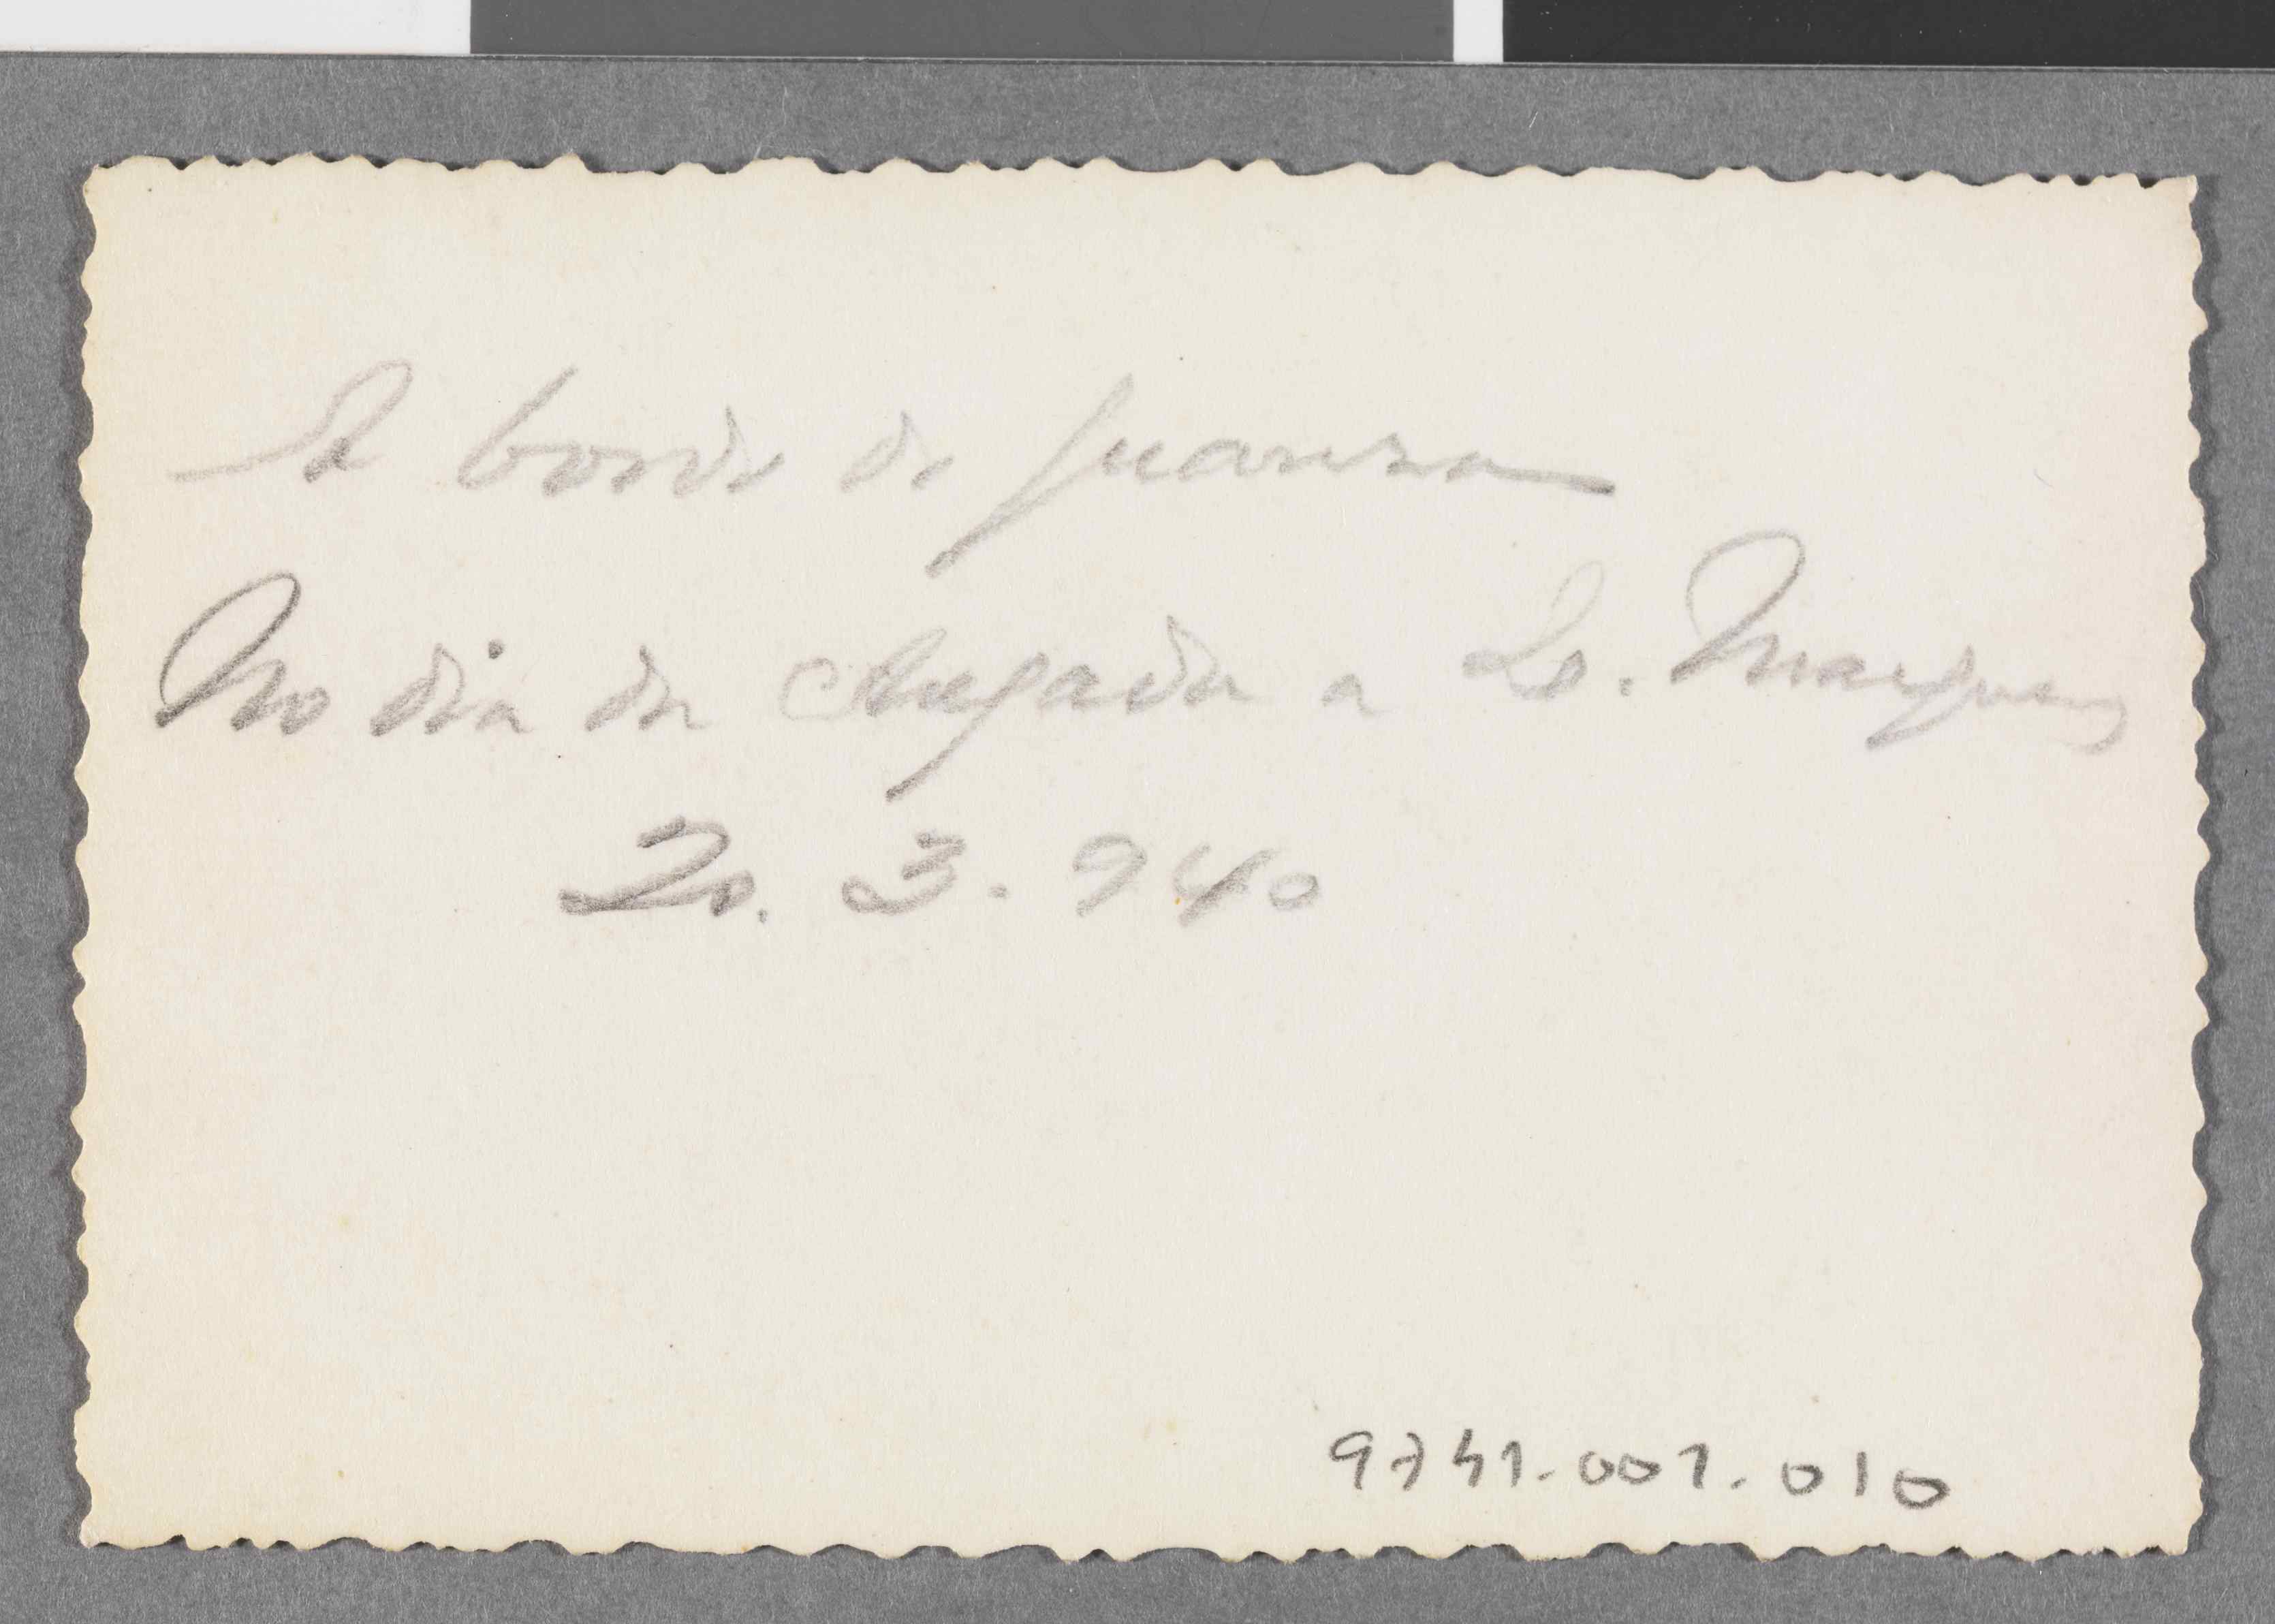 A bordo do Quanza
No dia da chegada a Lo. Marques
20. 3. 940
9741.001.010